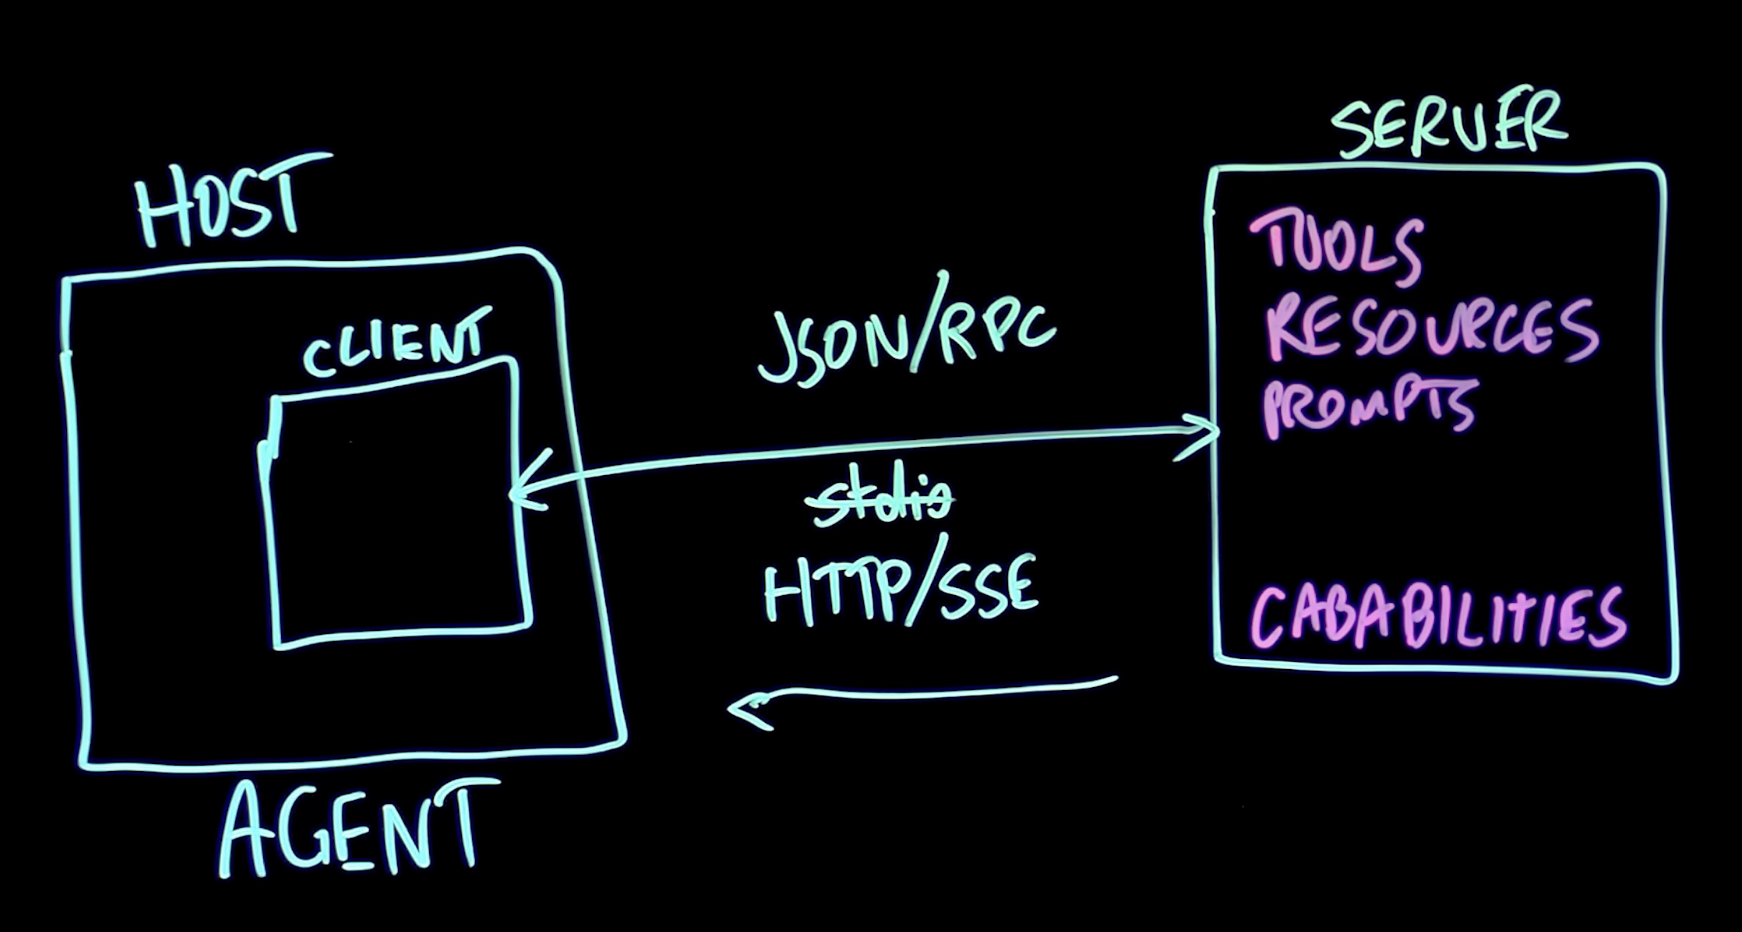 HOST
CLIENT
AGENT
JSON/RPC
stdio
HTTP/SSE
SERVER
TOOLS
RESOURCES
PROMPTS
CABABILITIES